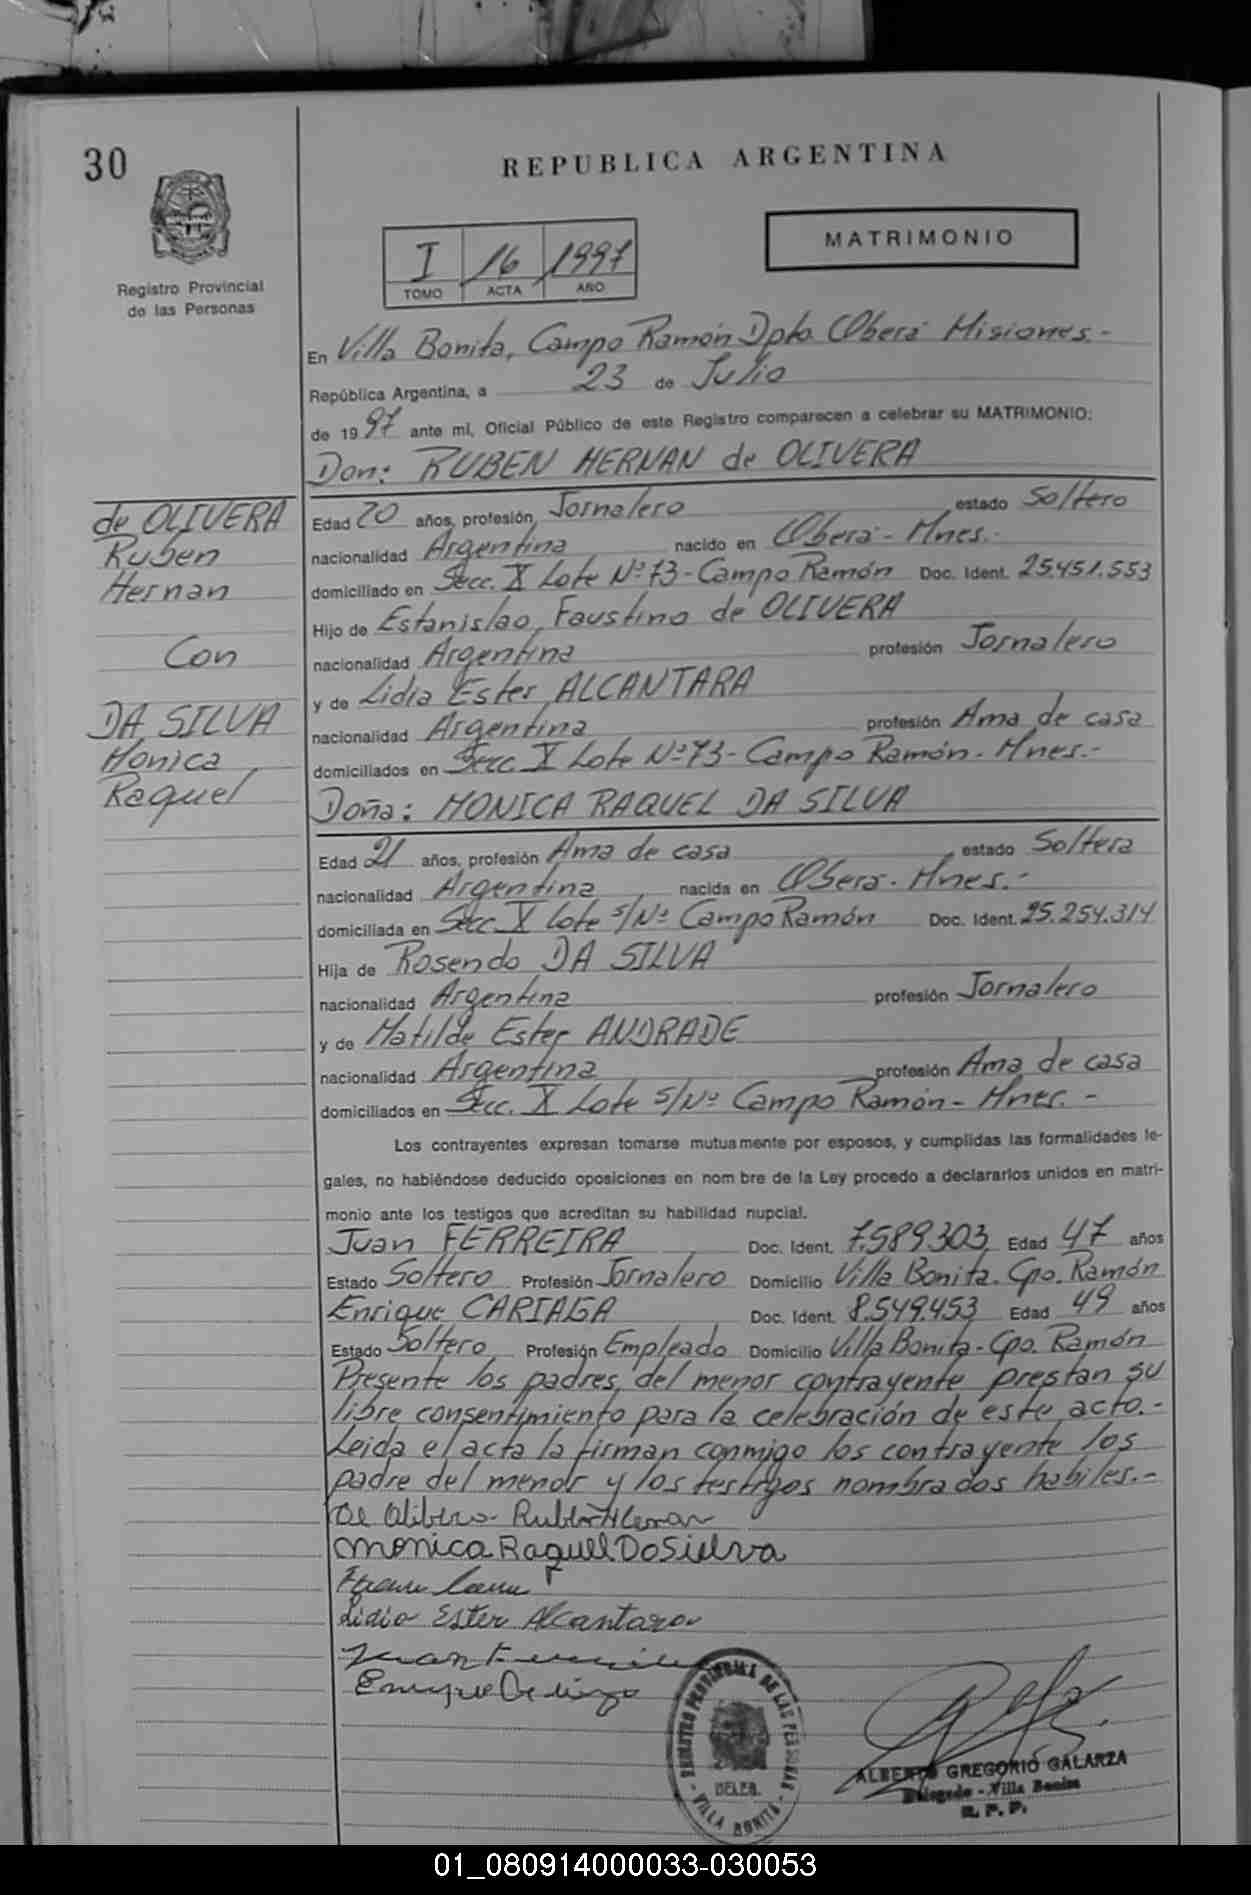 30
REPUBLICA ARGENTINA
Registro Provincial
de las Personas
I 16 1997
TOMO ACTA AÑO
MATRIMONIO
En Villa Bonita, Campo Ramón Dpto. Oberá Misiones.-
República Argentina, a 23 de Julio
de 1997 ante mí, Oficial Público de este Registro comparecen a celebrar su MATRIMONIO:
Don: RUBEN HERNAN de OLIVERA
de OLIVERA
Ruben
Hernan
Con
DA SILVA
Monica
Raquel
Edad 20 años, profesión Jornalero estado Soltero
nacionalidad Argentina nacido en Oberá - Mnes.-
domiciliado en Secc. X Lote Nº 73 - Campo Ramón Doc. Ident. 25.451.553
Hijo de Estanislao Faustino de OLIVERA
nacionalidad Argentina profesión Jornalero
y de Lidia Ester ALCANTARA
nacionalidad Argentina profesión Ama de casa
domiciliados en Secc. X Lote Nº 73 - Campo Ramón - Mnes.-
Doña: MONICA RAQUEL DA SILVA
Edad 21 años, profesión Ama de casa estado Soltera
nacionalidad Argentina nacida en Oberá - Mnes.-
domiciliada en Secc. X Lote s/Nº Campo Ramón Doc. Ident. 25.254.314
Hija de Rosendo DA SILVA
nacionalidad Argentina profesión Jornalero
y de Matilde Ester ANDRADE
nacionalidad Argentina profesión Ama de casa
domiciliados en Secc. X Lote s/Nº Campo Ramón - Mnes. -
Los contrayentes expresan tomarse mutuamente por esposos, y cumplidas las formalidades le-
gales, no habiéndose deducido oposiciones en nom bre de la Ley procedo a declararlos unidos en matri-
monio ante los testigos que acreditan su habilidad nupcial.
Juan FERREIRA Doc. Ident. 7.589303 Edad 47 años
Estado Soltero Profesión Jornalero Domicilio Villa Bonita. Cpo. Ramón
Enrique CARIAGA Doc. Ident. 8.549.453 Edad 49 años
Estado Soltero Profesión Empleado Domicilio Villa Bonita - Cpo. Ramón
Presente los padres del menor contrayente prestan su
libre consentimiento para la celebración de este acto.-
Leida el acta la firman conmigo los contrayente los
padre del menor y los testigos nombrados habiles.-
De Olibera Ruben Hernan
Monica Raquel Da Sielva
Lidia Ester Alcantara
Juan
Enrique
REGISTRO PROVINCIAL DE LAS PERSONAS
DELEG.
- VILLA BONITA -
ALBERTO GREGORIO GALARZA
Delegado - Villa Bonita
R. P. P.
01_080914000033-030053